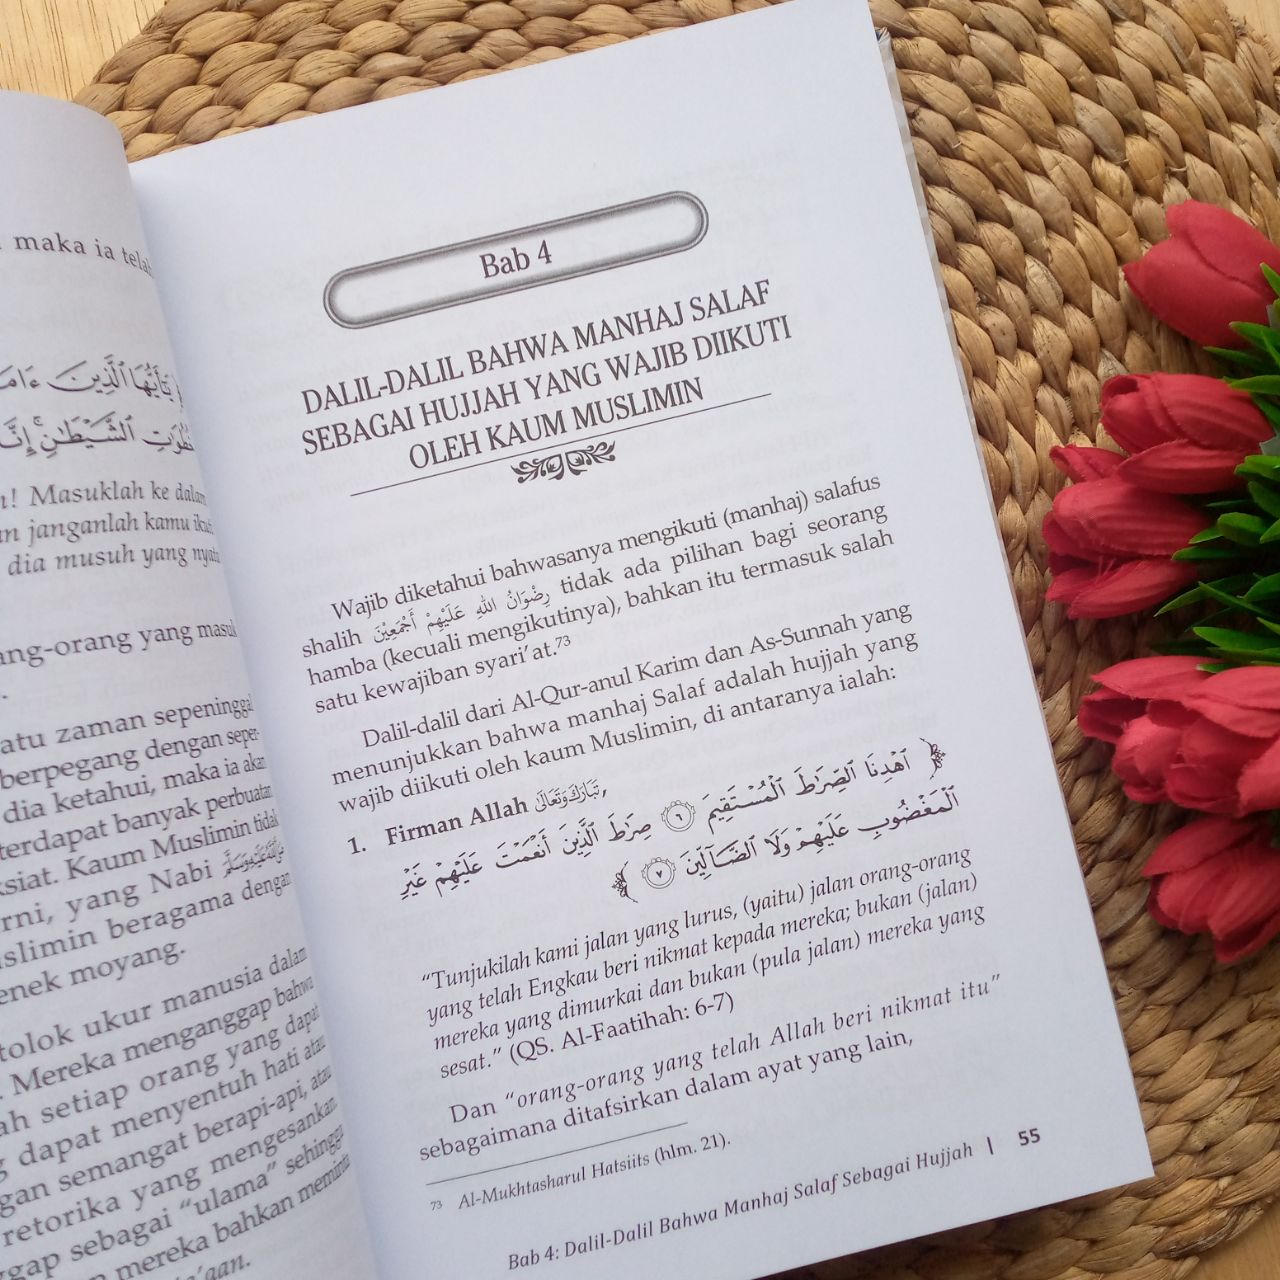 maka ia telah
يَٰٓأَيُّهَا ٱلَّذِينَ ءَامَ
ٱلشَّيْطَٰنِ ۚ إِنَّ
Masuklah ke dalam
janganlah kamu ikuti
dia musuh yang nyata
ang-orang yang masuk
atu zaman sepeninggal
berpegang dengan seper-
dia ketahui, maka ia akan
terdapat banyak perbuatan
ksiat. Kaum Muslimin tidak
rni, yang Nabi ﷺ
slimin beragama dengan
enek moyang.
tolok ukur manusia dalam
. Mereka menganggap bahwa
ah setiap orang yang dapat
g dapat menyentuh hati atau
ngan semangat berapi-api, atau
retorika yang mengesankan
ggap sebagai "ulama" sehingga
n mereka bahkan meminta
Bab 4
DALIL-DALIL BAHWA MANHAJ SALAF
SEBAGAI HUJJAH YANG WAJIB DIIKUTI
OLEH KAUM MUSLIMIN
Wajib diketahui bahwasanya mengikuti (manhaj) salafus
shalih رِضْوَانُ اللهِ عَلَيْهِمْ أَجْمَعِيْنَ tidak ada pilihan bagi seorang
hamba (kecuali mengikutinya), bahkan itu termasuk salah
satu kewajiban syari'at.73
Dalil-dalil dari Al-Qur-anul Karim dan As-Sunnah yang
menunjukkan bahwa manhaj Salaf adalah hujjah yang
wajib diikuti oleh kaum Muslimin, di antaranya ialah:
1. Firman Allah تَبَارَكَ وَتَعَالَى,
﴿ ٱهْدِنَا ٱلصِّرَٰطَ ٱلْمُسْتَقِيمَ ٦ صِرَٰطَ ٱلَّذِينَ أَنْعَمْتَ عَلَيْهِمْ غَيْرِ
ٱلْمَغْضُوبِ عَلَيْهِمْ وَلَا ٱلضَّآلِّينَ ٧ ﴾
"Tunjukilah kami jalan yang lurus, (yaitu) jalan orang-orang
yang telah Engkau beri nikmat kepada mereka; bukan (jalan)
mereka yang dimurkai dan bukan (pula jalan) mereka yang
sesat." (QS. Al-Faatihah: 6-7)
Dan "orang-orang yang telah Allah beri nikmat itu"
sebagaimana ditafsirkan dalam ayat yang lain,
73 Al-Mukhtasharul Hatsiits (hlm. 21).
Bab 4: Dalil-Dalil Bahwa Manhaj Salaf Sebagai Hujjah | 55